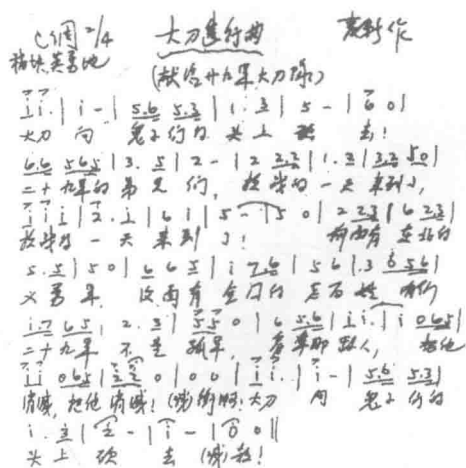 C调 2/4 大刀进行曲 麦新作
(献给廿九军大刀队)
i i. | i - | 5.6 5.3 | 1. 3 | 5 - | 6 0 |
大刀 向 鬼子们的 头上 砍 去!
6.6 5 6 5 | 3. 5 | 2 - | 2 2 3 | 1. 3 | 3.3 5 0 |
二十九军的 弟兄们, 抗战的一天来到了,
i i i | 2. i | 6 i | 5 - | 5 0 | 2 2 3 | 6 2 3 |
抗战的一天来到了! 前面有
5. 5 | 5 0 | 6 6 5 | i 7 6 | 5 6 | . 3 0 5 6 |
义勇军, 后面有全国的老百姓 咱们
i.7 6 5 | 2. 3 | 5 5 0 | 6 5.6 | i i. | i 0 6 5 |
二十九军 不是孤军, 看准那敌人, 把他
i i 0 6 5 | 2 2 0 | 0 0 | i i. | i - | 5.6 5.3 |
消灭, 把他消灭! (喊) 大刀 向 鬼子们的
i. 3 | 2 - | i - | 0 0 ||
头上 砍 去 (喊)杀!